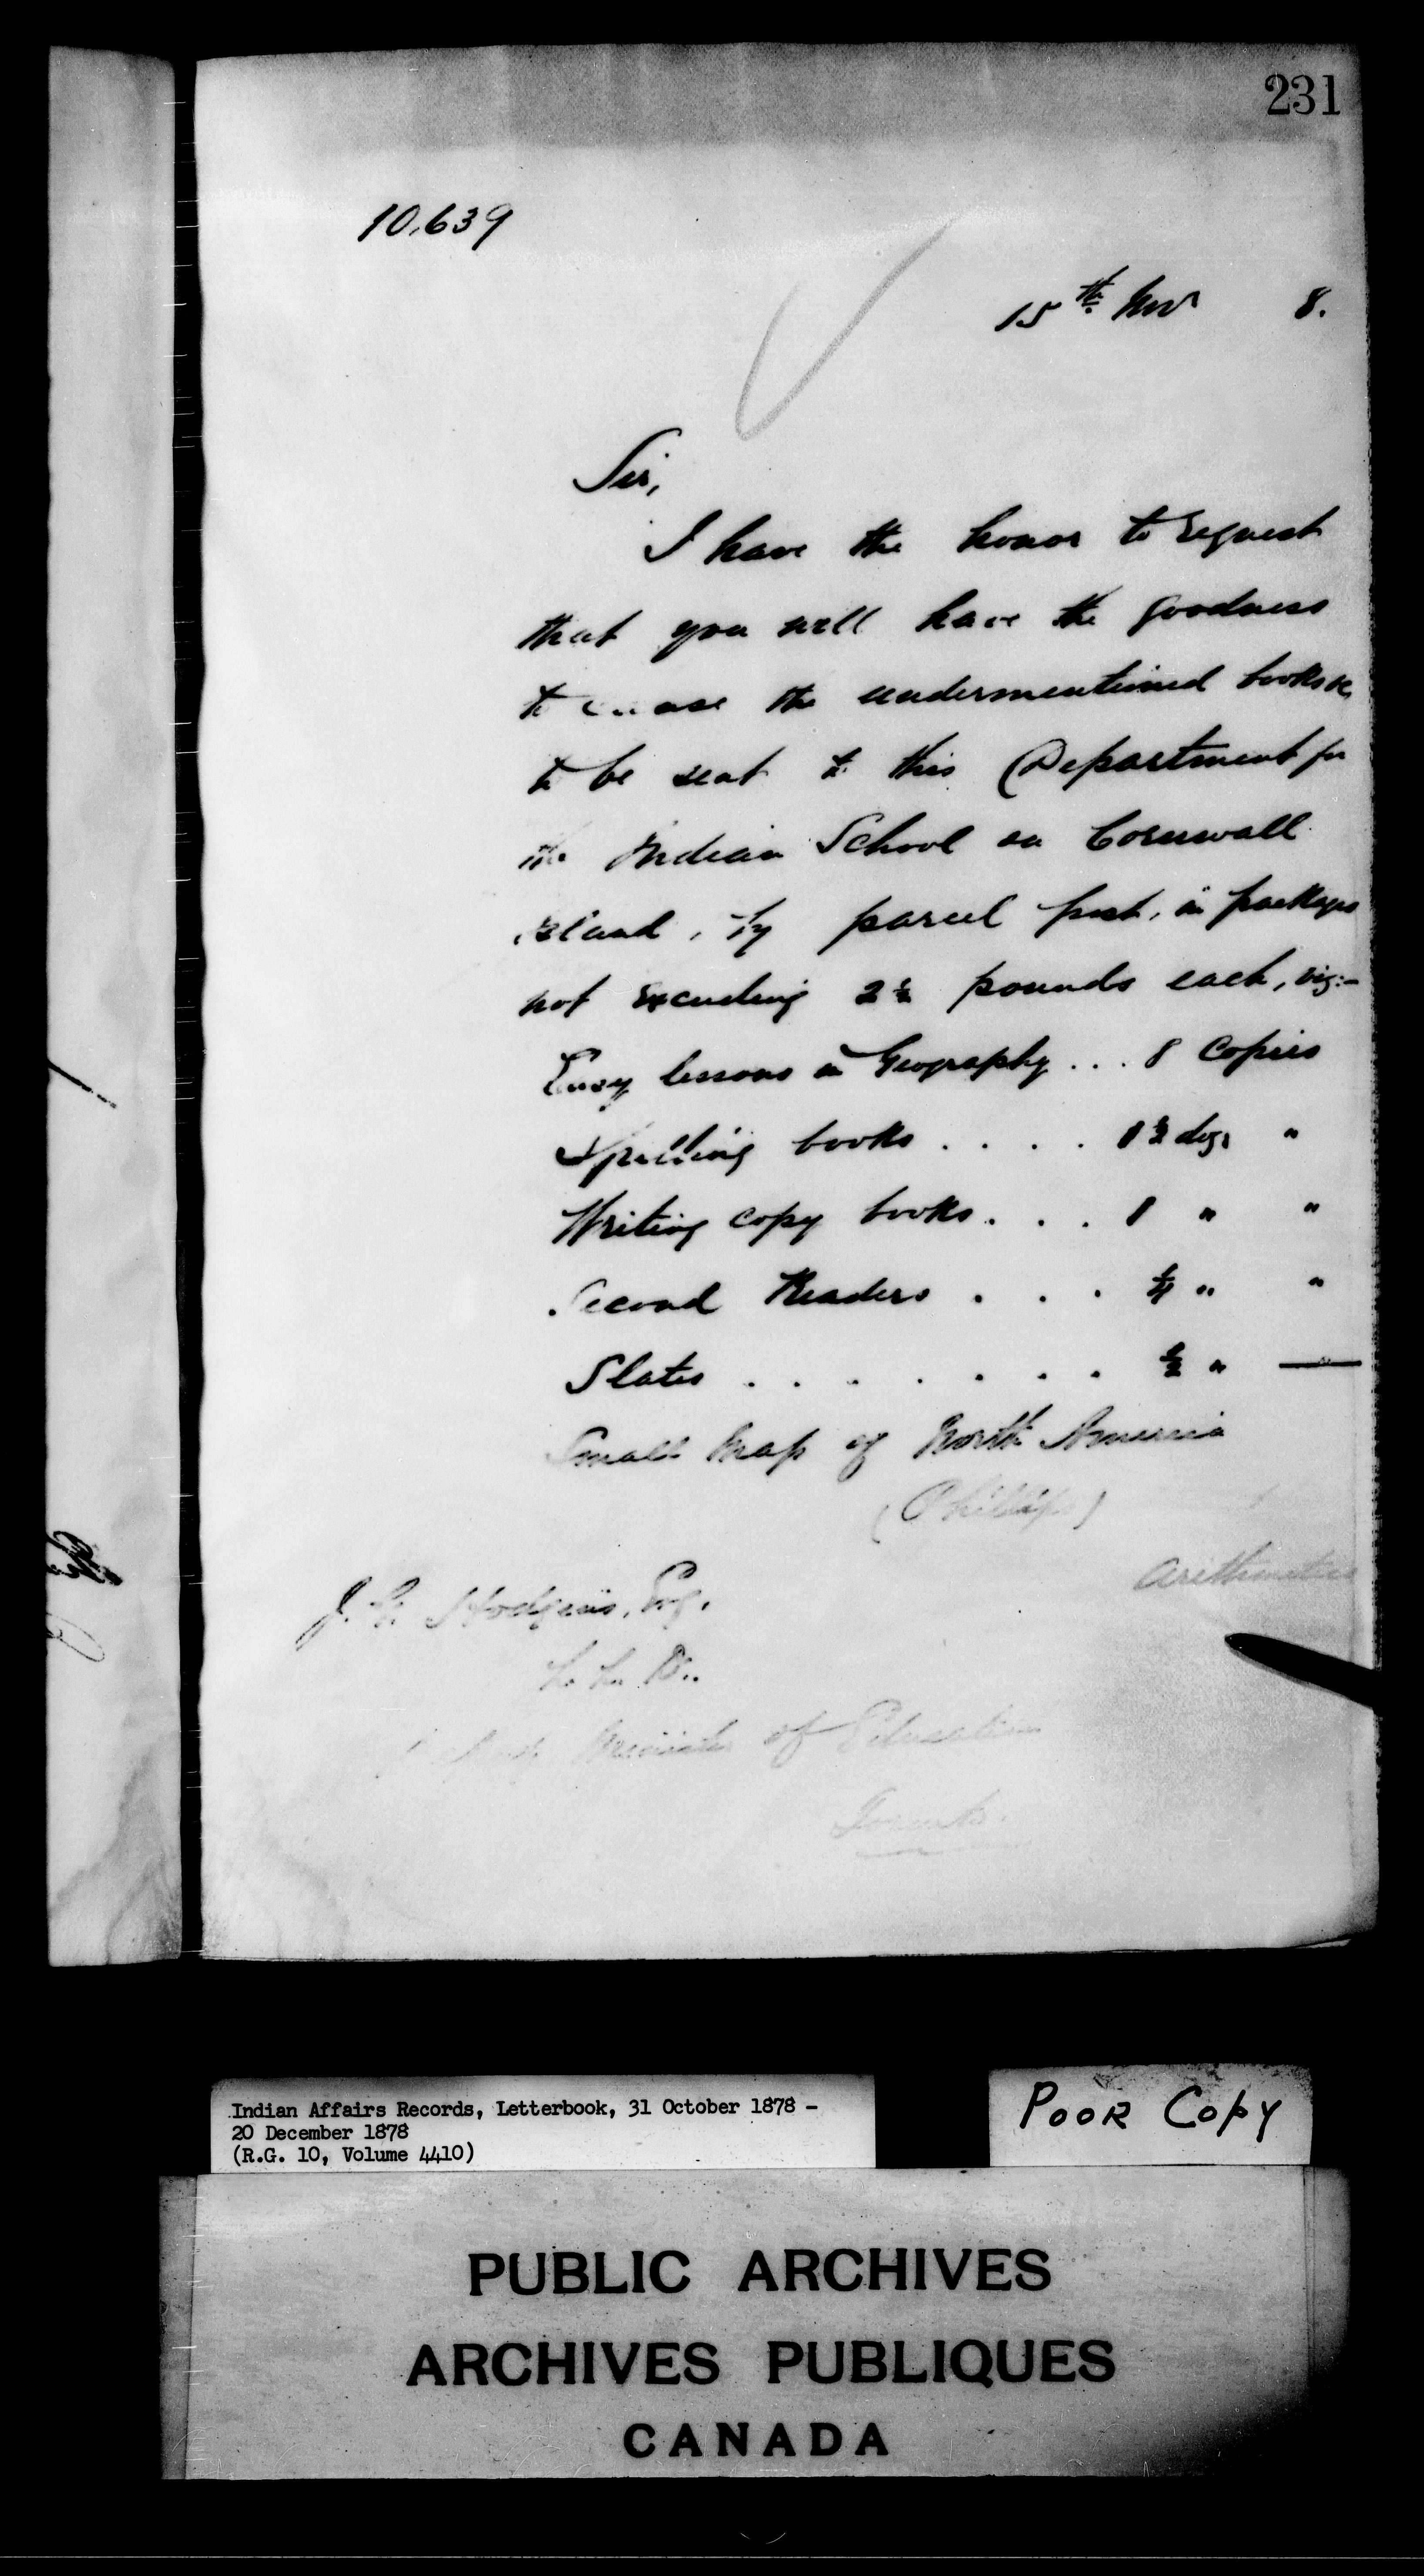 231
10.639
15th Novr 8.
Sir,
I have the honor to request
that you will have the goodness
to cause the undermentioned books &c
to be sent to this Department for
the Indian School on Cornwall
Island, by parcel post, in packages
not exceeding 2½ pounds each, viz:-
Easy lessons in Geography ... 8 Copies
Spelling books .... 1½ doz, "
Writing copy books ... 1 " "
Second Readers ... ¼ " "
Slates ........ ½ " —
Small Map of North America
(Phillips)
Arithmetics
J. G. Hodgins, Esq.
L. L. D..
Minister of Education
Toronto.
Indian Affairs Records, Letterbook, 31 October 1878 -
20 December 1878
(R.G. 10, Volume 4410)
POOR COPY
PUBLIC ARCHIVES
ARCHIVES PUBLIQUES
CANADA